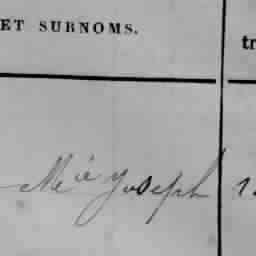 ET SURNOMS.
tr
Mie Joseph 1